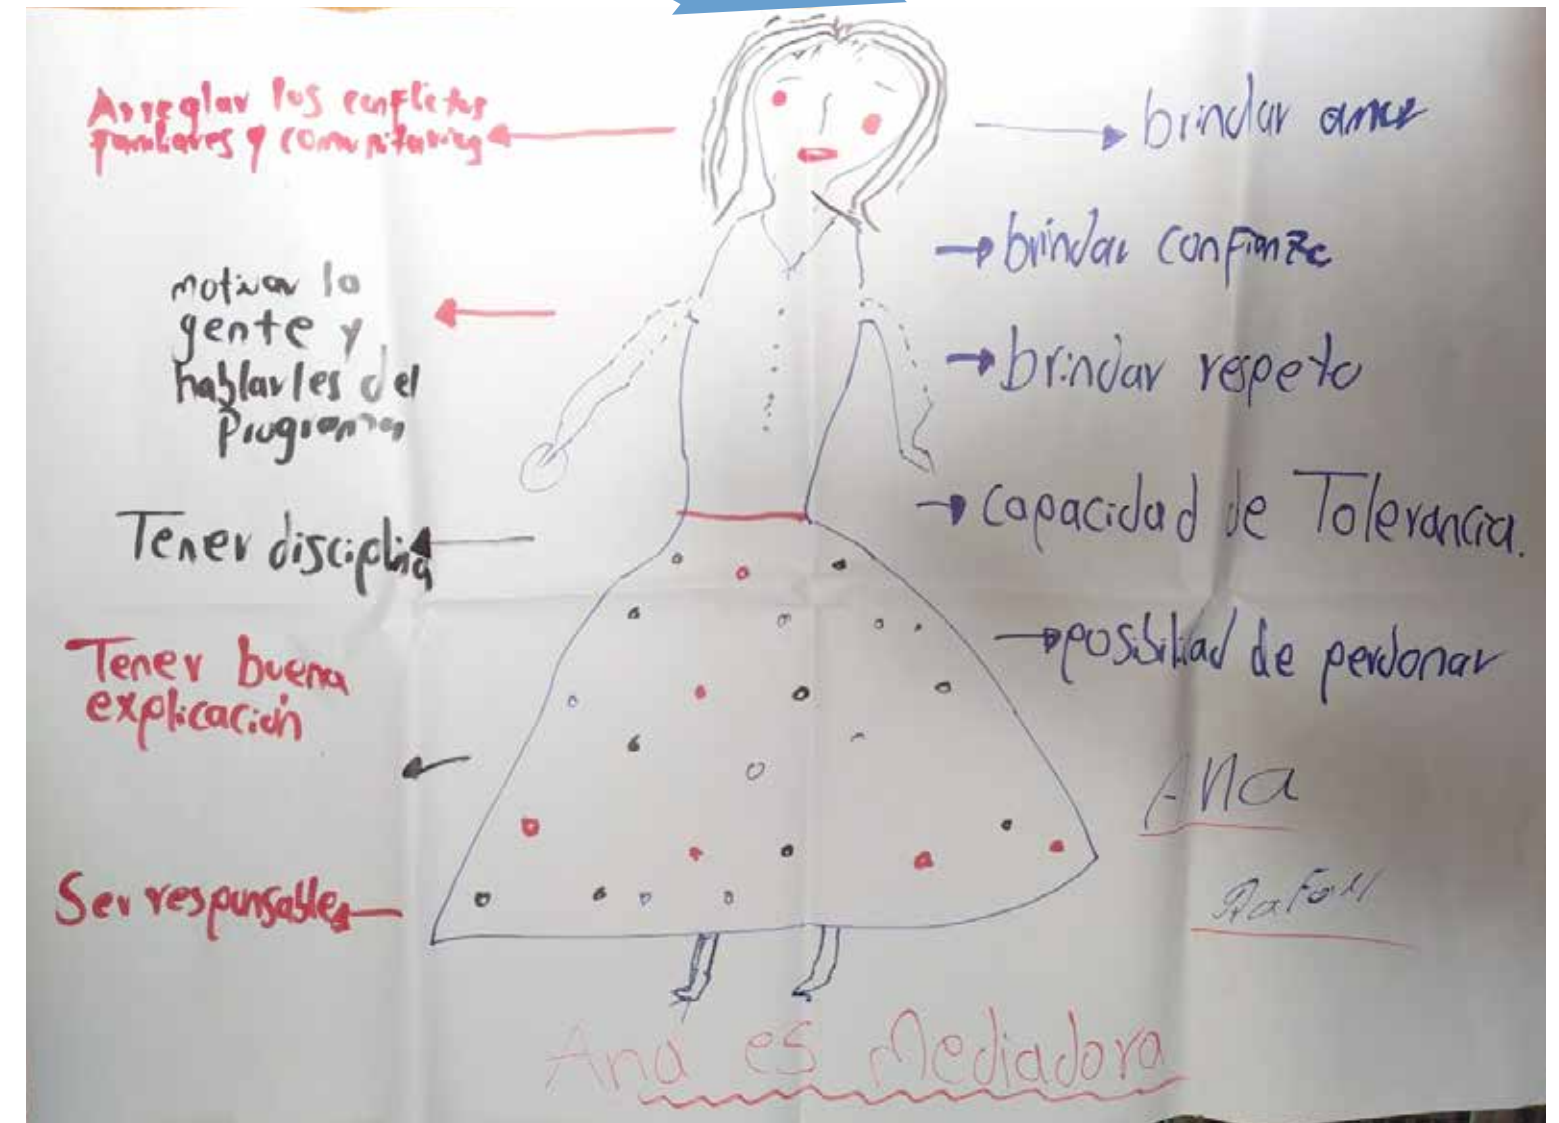 Arreglar los conflictos
familiares y comunitarios
motivar la
gente y
hablarles del
Programa
Tener disciplina
Tener buena
explicación
Ser responsable
brindar amor
brindar confianza
brindar respeto
capacidad de Tolerancia.
posibiliad de perdonar
Ana
Ana es Mediadora